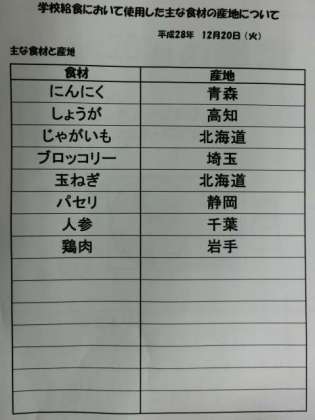 学校給食において使用した主な食材の産地について
平成28年 12月20日（火）
主な食材と産地
食材 産地
にんにく 青森
しょうが 高知
じゃがいも 北海道
ブロッコリー 埼玉
玉ねぎ 北海道
パセリ 静岡
人参 千葉
鶏肉 岩手